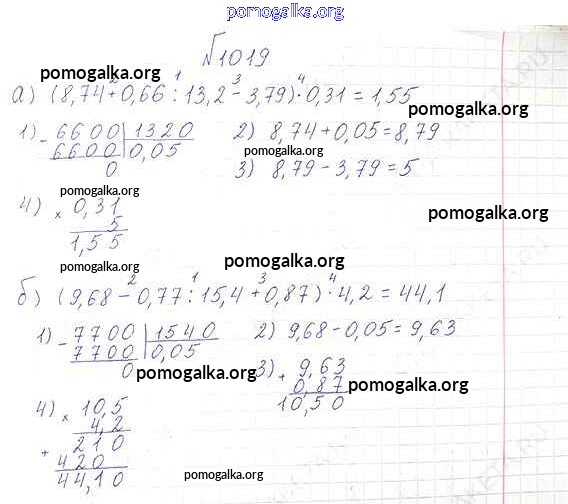 pomogalka.org
№1019
pomogalka.org
а) (8,74 + 0,66 : 13,2 - 3,79) · 0,31 = 1,55
2 1 3 4
pomogalka.org
1) - 6600 | 1320
6600 | 0,05
0
2) 8,74 + 0,05 = 8,79
pomogalka.org
3) 8,79 - 3,79 = 5
pomogalka.org
4) × 0,31
5
1,55
pomogalka.org
pomogalka.org
pomogalka.org
2 1 3 4
б) (9,68 - 0,77 : 15,4 + 0,87) · 4,2 = 44,1
1) - 7700 | 1540
7700 | 0,05
0
2) 9,68 - 0,05 = 9,63
pomogalka.org
3) + 9,63
0,87
10,50
pomogalka.org
4) × 10,5
4,2
+ 210
420
44,10
pomogalka.org